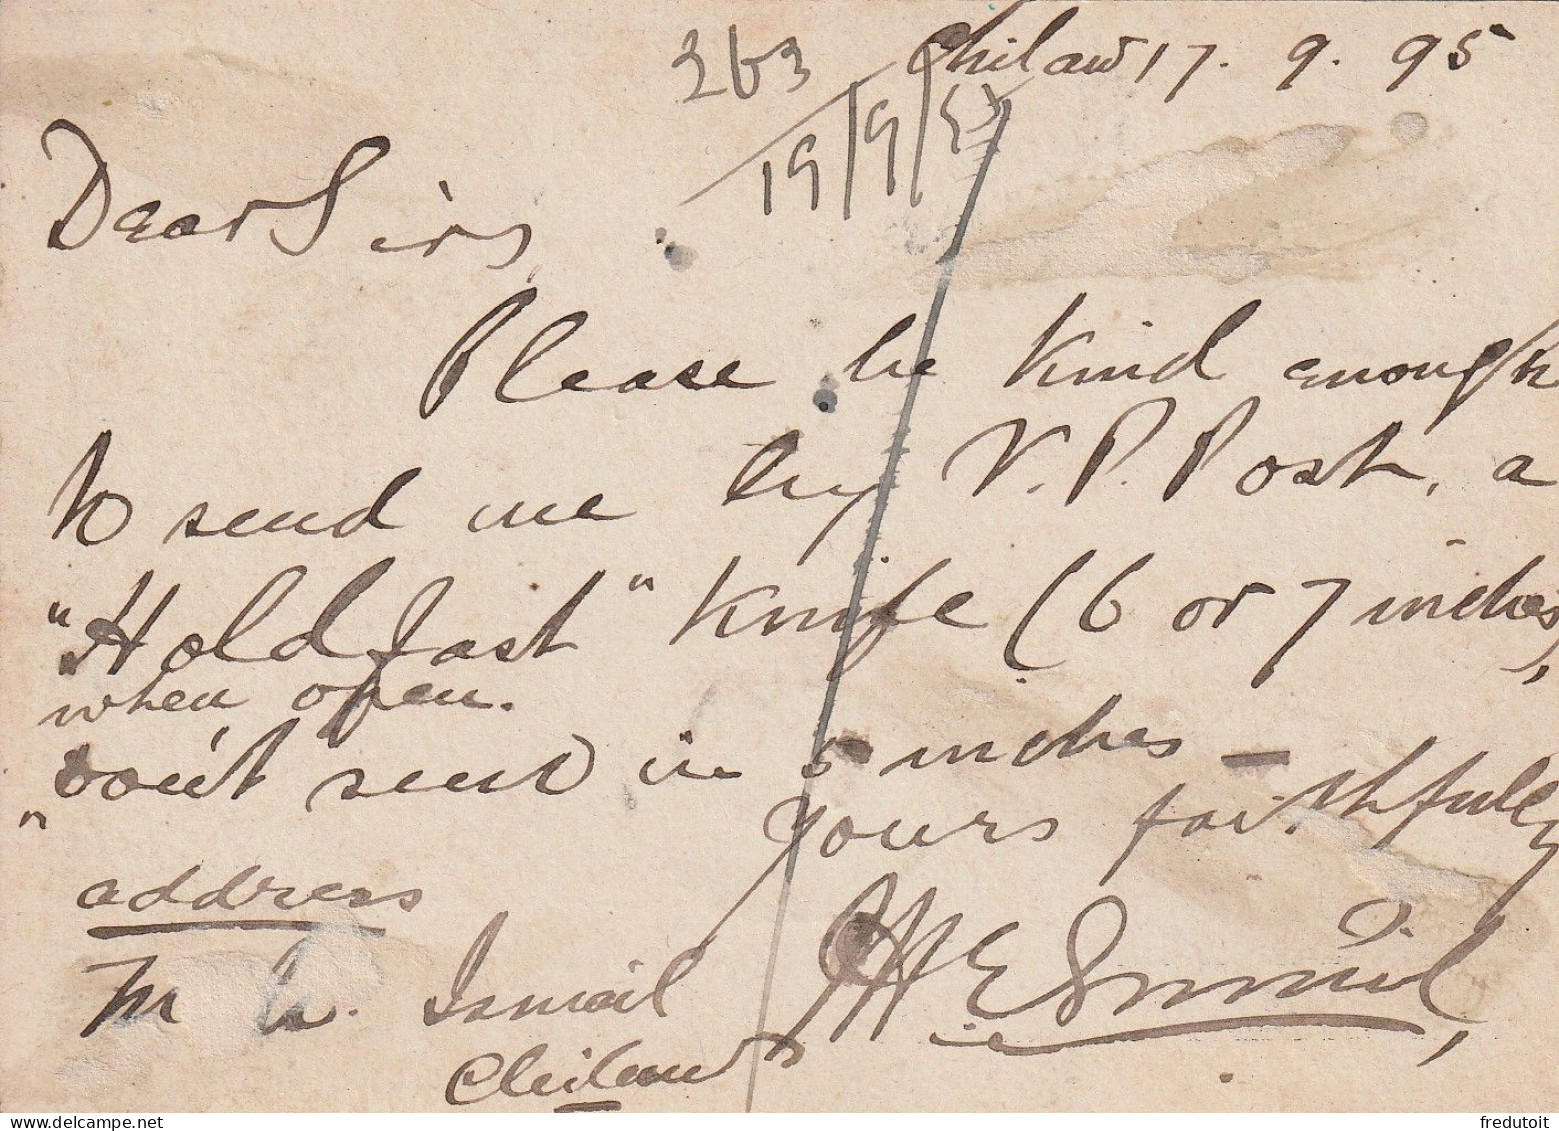 263 Chilaw 17. 9. 95
19/9/95
Dear Sirs,
Please be kind enough
to send me by V.P. Post, a
"Hold fast" Knife (6 or 7 inches,
when open.
don't send in 5 inches —
yours faithfully
"
address
M. Ismail
Chilaw